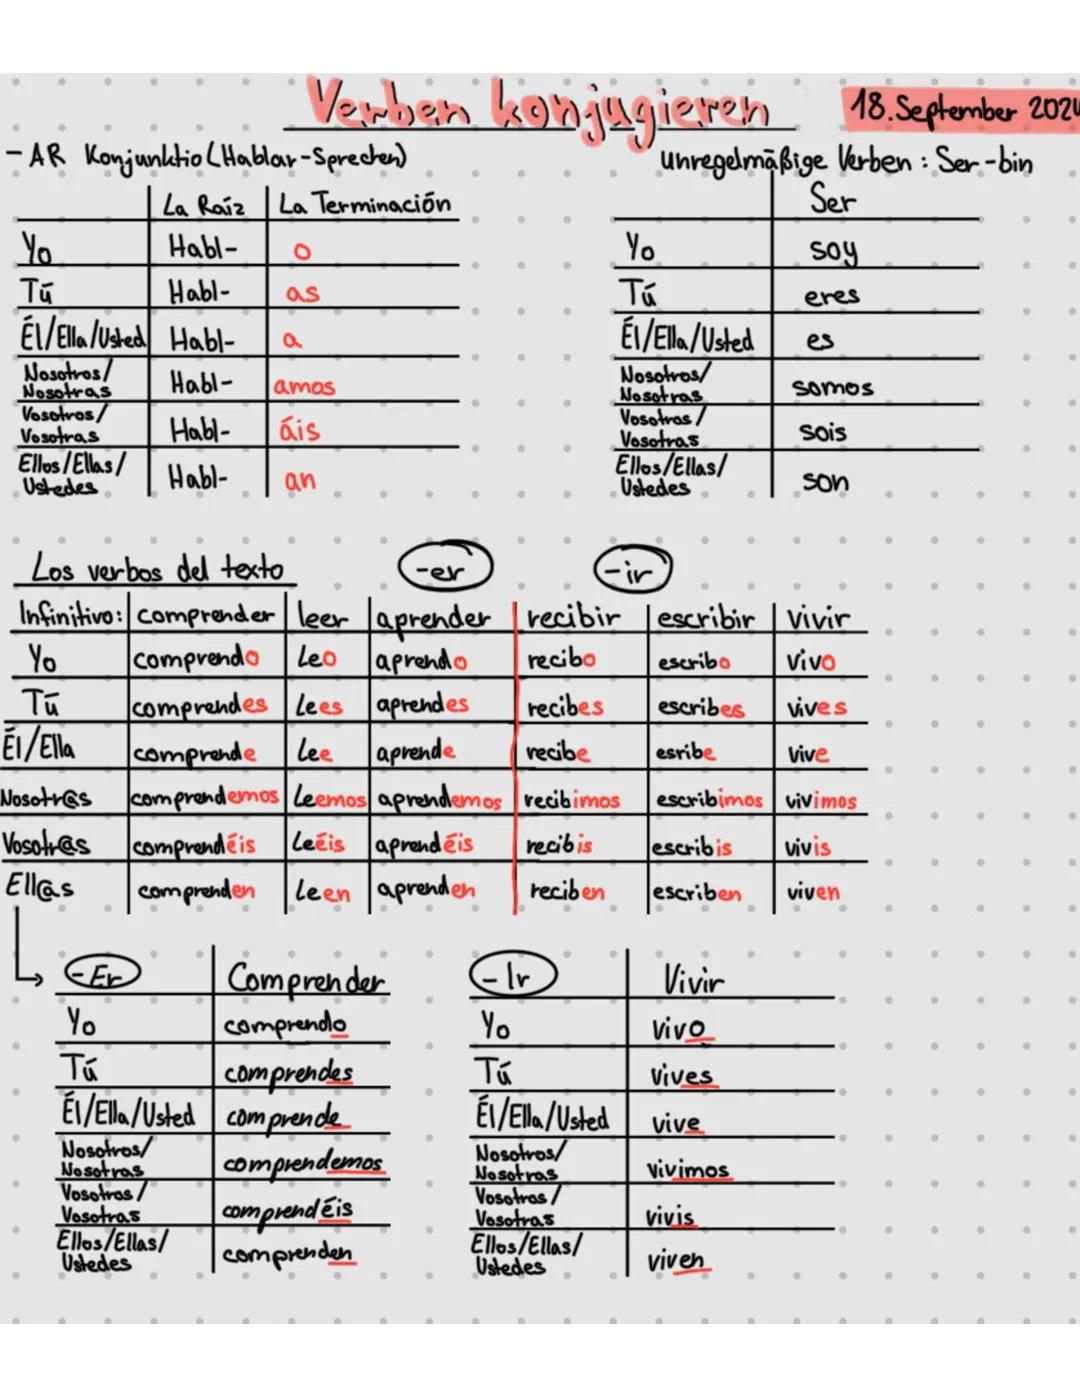 Verben konjugieren
18. September 2024
- AR Konjunktio (Hablar - Sprechen)
La Raíz La Terminación
Yo Habl- o
Tú Habl- as
Él/Ella/Usted Habl- a
Nosotros/ Nosotras Habl- amos
Vosotros/ Vosotras Habl- áis
Ellos/Ellas/ Ustedes Habl- an
Unregelmäßige Verben: Ser - bin
Ser
Yo soy
Tú eres
Él/Ella/Usted es
Nosotros/ Nosotras somos
Vosotros/ Vosotras sois
Ellos/Ellas/ Ustedes son
Los verbos del texto -er -ir
Infinitivo: comprender leer aprender recibir escribir vivir
Yo comprendo Leo aprendo recibo escribo vivo
Tú comprendes Lees aprendes recibes escribes vives
Él/Ella comprende Lee aprende recibe esribe vive
Nosotr@s comprendemos Leemos aprendemos recibimos escribimos vivimos
Vosotr@s comprendéis Leéis aprendéis recibis escribis vivis
Ell@s comprenden Leen aprenden reciben escriben viven
- Er Comprender
Yo comprendo
Tú comprendes
Él/Ella/Usted comprende
Nosotros/ Nosotras comprendemos
Vosotros/ Vosotras comprendéis
Ellos/Ellas/ Ustedes comprenden
- Ir Vivir
Yo vivo
Tú vives
Él/Ella/Usted vive
Nosotros/ Nosotras vivimos
Vosotros/ Vosotras vivis
Ellos/Ellas/ Ustedes viven